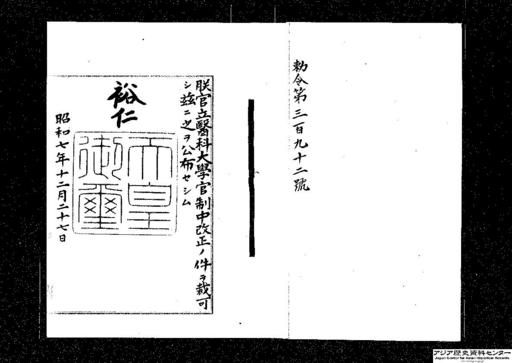 勅令第三百九十二號
朕官立醫科大學官制中改正ノ件ヲ裁可
シ茲ニ之ヲ公布セシム
裕仁
天皇
御璽
昭和七年十二月二十七日
アジア歴史資料センター
Japan Center for Asian Historical Records